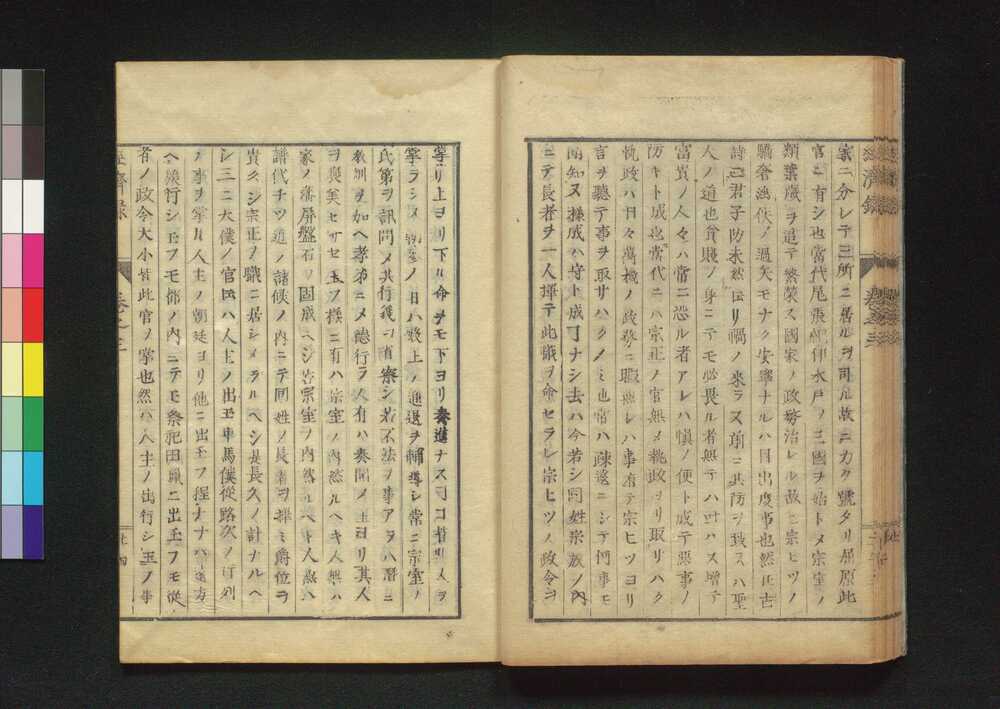 家ニ分レテ三所ニ居ルヲ司ル故ニカク號タリ屈原此
官ニ有シ也當代尾張紀伊水戸ノ三國ヲ始トメ宗室ノ
類葉歳ヲ逐テ繁榮ス國家ノ政務治レル故ニ宗ヒツノ
驕奢淫佚ノ過失モナク安寧ナルハ目出度事也然圧古
詩ニ君子防未然ト因リ禍ノ来ラス前ニ其防ヲ設スハ聖
人ノ道也貧賤ノ身ニテモ必畏ル者無テハ叶ハス増テ
富貴ノ人々ハ常ニ恐ル者アレハ愼ノ便ト成テ惡事ノ
防キト成也當代ニハ宗正ノ官無メ執政ヨリ取リハク
執政ハ日々萬機ノ政務ニ暇無レハ事有テ宗ヒツヨリ
言ヲ聽テ事ヲ取サハクノミ也常ハ疎遠ニシテ何事モ
聞知ヌ操成ハ守ト成丁ナシ去ハ今若シ同姓宗族ノ内
ニテ長者ヲ一人擇テ此職ヲ命セラレ宗ヒツノ政令ヲ
掌リ上ヨリ下ル命ヲモ下ヨリ奏進ナス丁コ𪜈此人ヲ
掌ラシメ朝參ノ日ハ殿上ノ進退ヲ輔導シ常ニ宗室ノ
氏第ヲ訊問メ其行儀ヲ省察シ若不法ノ事アラハ潜ニ
教訓ヲ加ヘ孝弟ニメ德行ラ人有ハ奏聞メ上ヨリ其人
ヲ褒美セサセ玉フ樣ニ有ハ宗室ノ内然ルヘキ人無ハ
家ノ藩屏盤石ノ固成ヘシ若宗室ノ内然ルヘキ人無ハ
譜代チツ道ノ諸候ノ内ニテ同姓ノ長者ヲ擇ミ爵位ヲ
貴クシ宗正ノ職ニ居シメラルヘシ是長久ノ計ナルヘ
シ三ニ大僕ノ官ハ人主ノ出王車馬僕從路次ノ行列
ノ事ヲ掌ル人主ノ朝廷ヨリ他ニ出玉フ程ナナハ遠方
ヘ旅行シ玉フモ都ノ内ニテモ祭祀田獵ニ出玉フモ從
者ノ政令大小皆此官ノ掌也然ハ人主ノ出行シ玉フ事
經濟録
卷之三